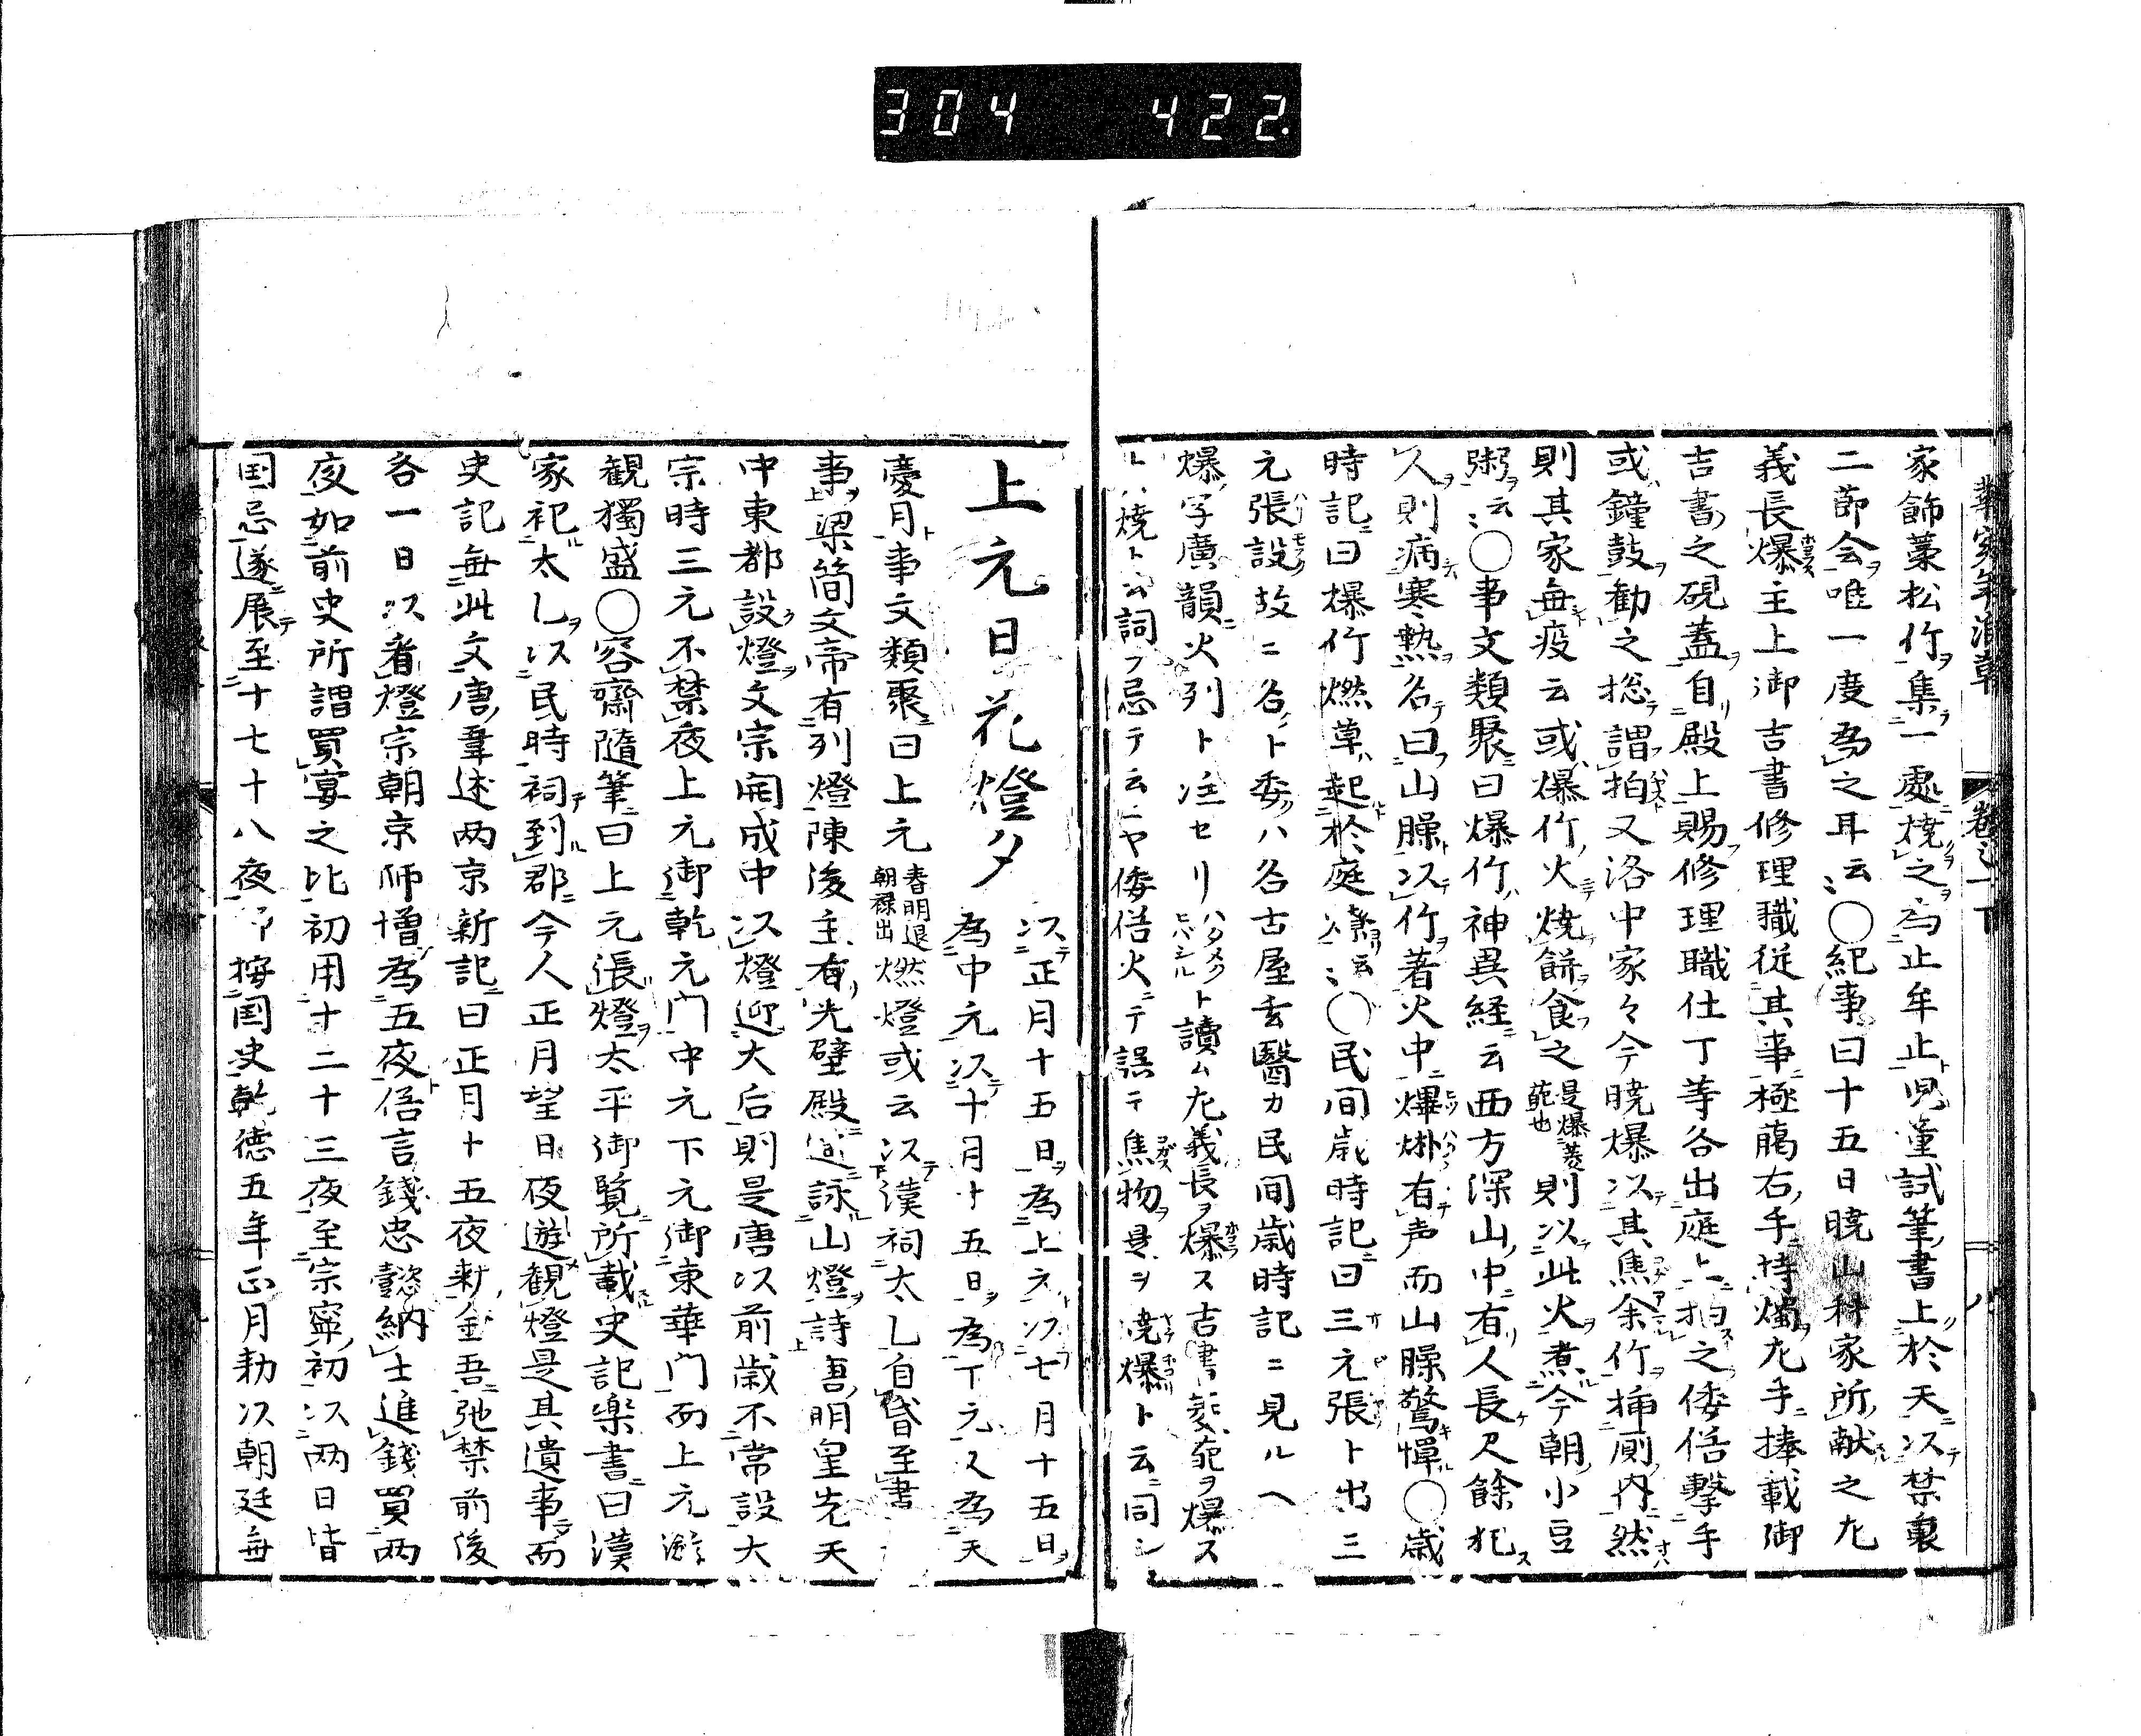 304 422.
家飾藁松竹集一處燒之為止牟止児童試筆書上於天以禁裏
二節会唯一度為之耳云〻○紀事曰十五日暁山科家所献之左
義長爆主上御吉書修理職従其事極﨟右手持燭左手捧載御
吉書之硯蓋自殿上賜修理職仕丁等各出庭上拍之倭俗擊手
或鐘鼓勧之揔謂拍又洛中家々今暁爆以其焦余竹挿厠内然
則其家毎疫云或爆竹火焼餅食之是爆菱葩也則以此火煮今朝小豆
粥云〻○事文類聚曰爆竹神異経云西方深山中有人長尺餘犯
人則病寒熱名曰山臊以竹著火中爆㷶有声而山臊驚憚○歳
時記曰爆竹燃草起於庭燎云〻○民间歳時記曰三元張ト出三
元張設故ニ名ト委ハ名古屋玄醫カ民间歳時記ニ見ルヘ
爆字廣韻火列ト注セリハタメクヒバシルト讀ム左義長ヲ爆ス吉書菱葩ヲ爆ス
トハ焼ト云詞ヲ忌テ云ニヤ倭俗火ニテ誤テ焦物是ヲ焼爆ト云ニ同シ
上元日花燈夕
以正月十五日為上元以七月十五日
為中元以十月十五日為下元又為天
慶月事文類聚曰上元春明退朝禄出燃燈或云以漢祠太乙自昏至書
事梁簡文帝有列燈陳後主有光壁殿遥詠山燈詩唐明皇先天
中東都設燈文宗開成中以燈迎大后則是唐以前歳不常設大
宗時三元不禁夜上元御乾元门中元下元御東華门而上元遊
観獨盛○容齋隨筆曰上元張燈太平御覧所載史記楽書曰漢
家祀太乙以民時祠到郡今人正月望日夜遊観燈是其遺事而
史記毎此文唐韋述两京新記曰正月十五夜勅金吾弛禁前後
各一日以看燈宗朝京师増為五夜俗言錢忠懿納土進錢買两
夜如前史所謂買宴之比初用十二十三夜至宗寧初以两日皆
国忌遂展至十七十八夜 按国史乾徳五年正月勅以朝廷毎